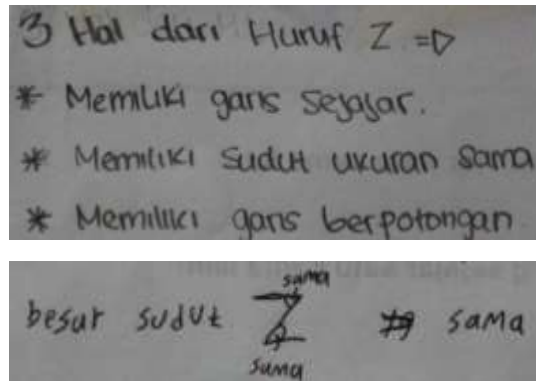 3 Hal dari Huruf Z =>
* Memiliki garis sejajar.
* Memiliki sudut ukuran sama
* Memiliki garis berpotongan
sama
besar sudut Z sama
sama